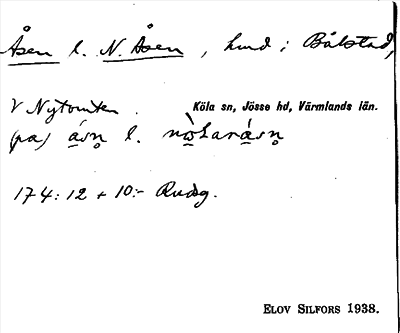 Åsen l. N. Åsen, hmd i Bålstad,
V Nytomten. Köla sn, Jösse hd, Värmlands län.
(på) åsn̥ l. nòLaråsn̥
174:12 + 10:- Rudsg.
ELOV SILFORS 1938.